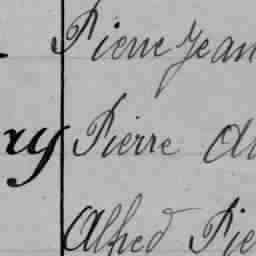 Pierre Jean
ry Pierre
Alfred Pie